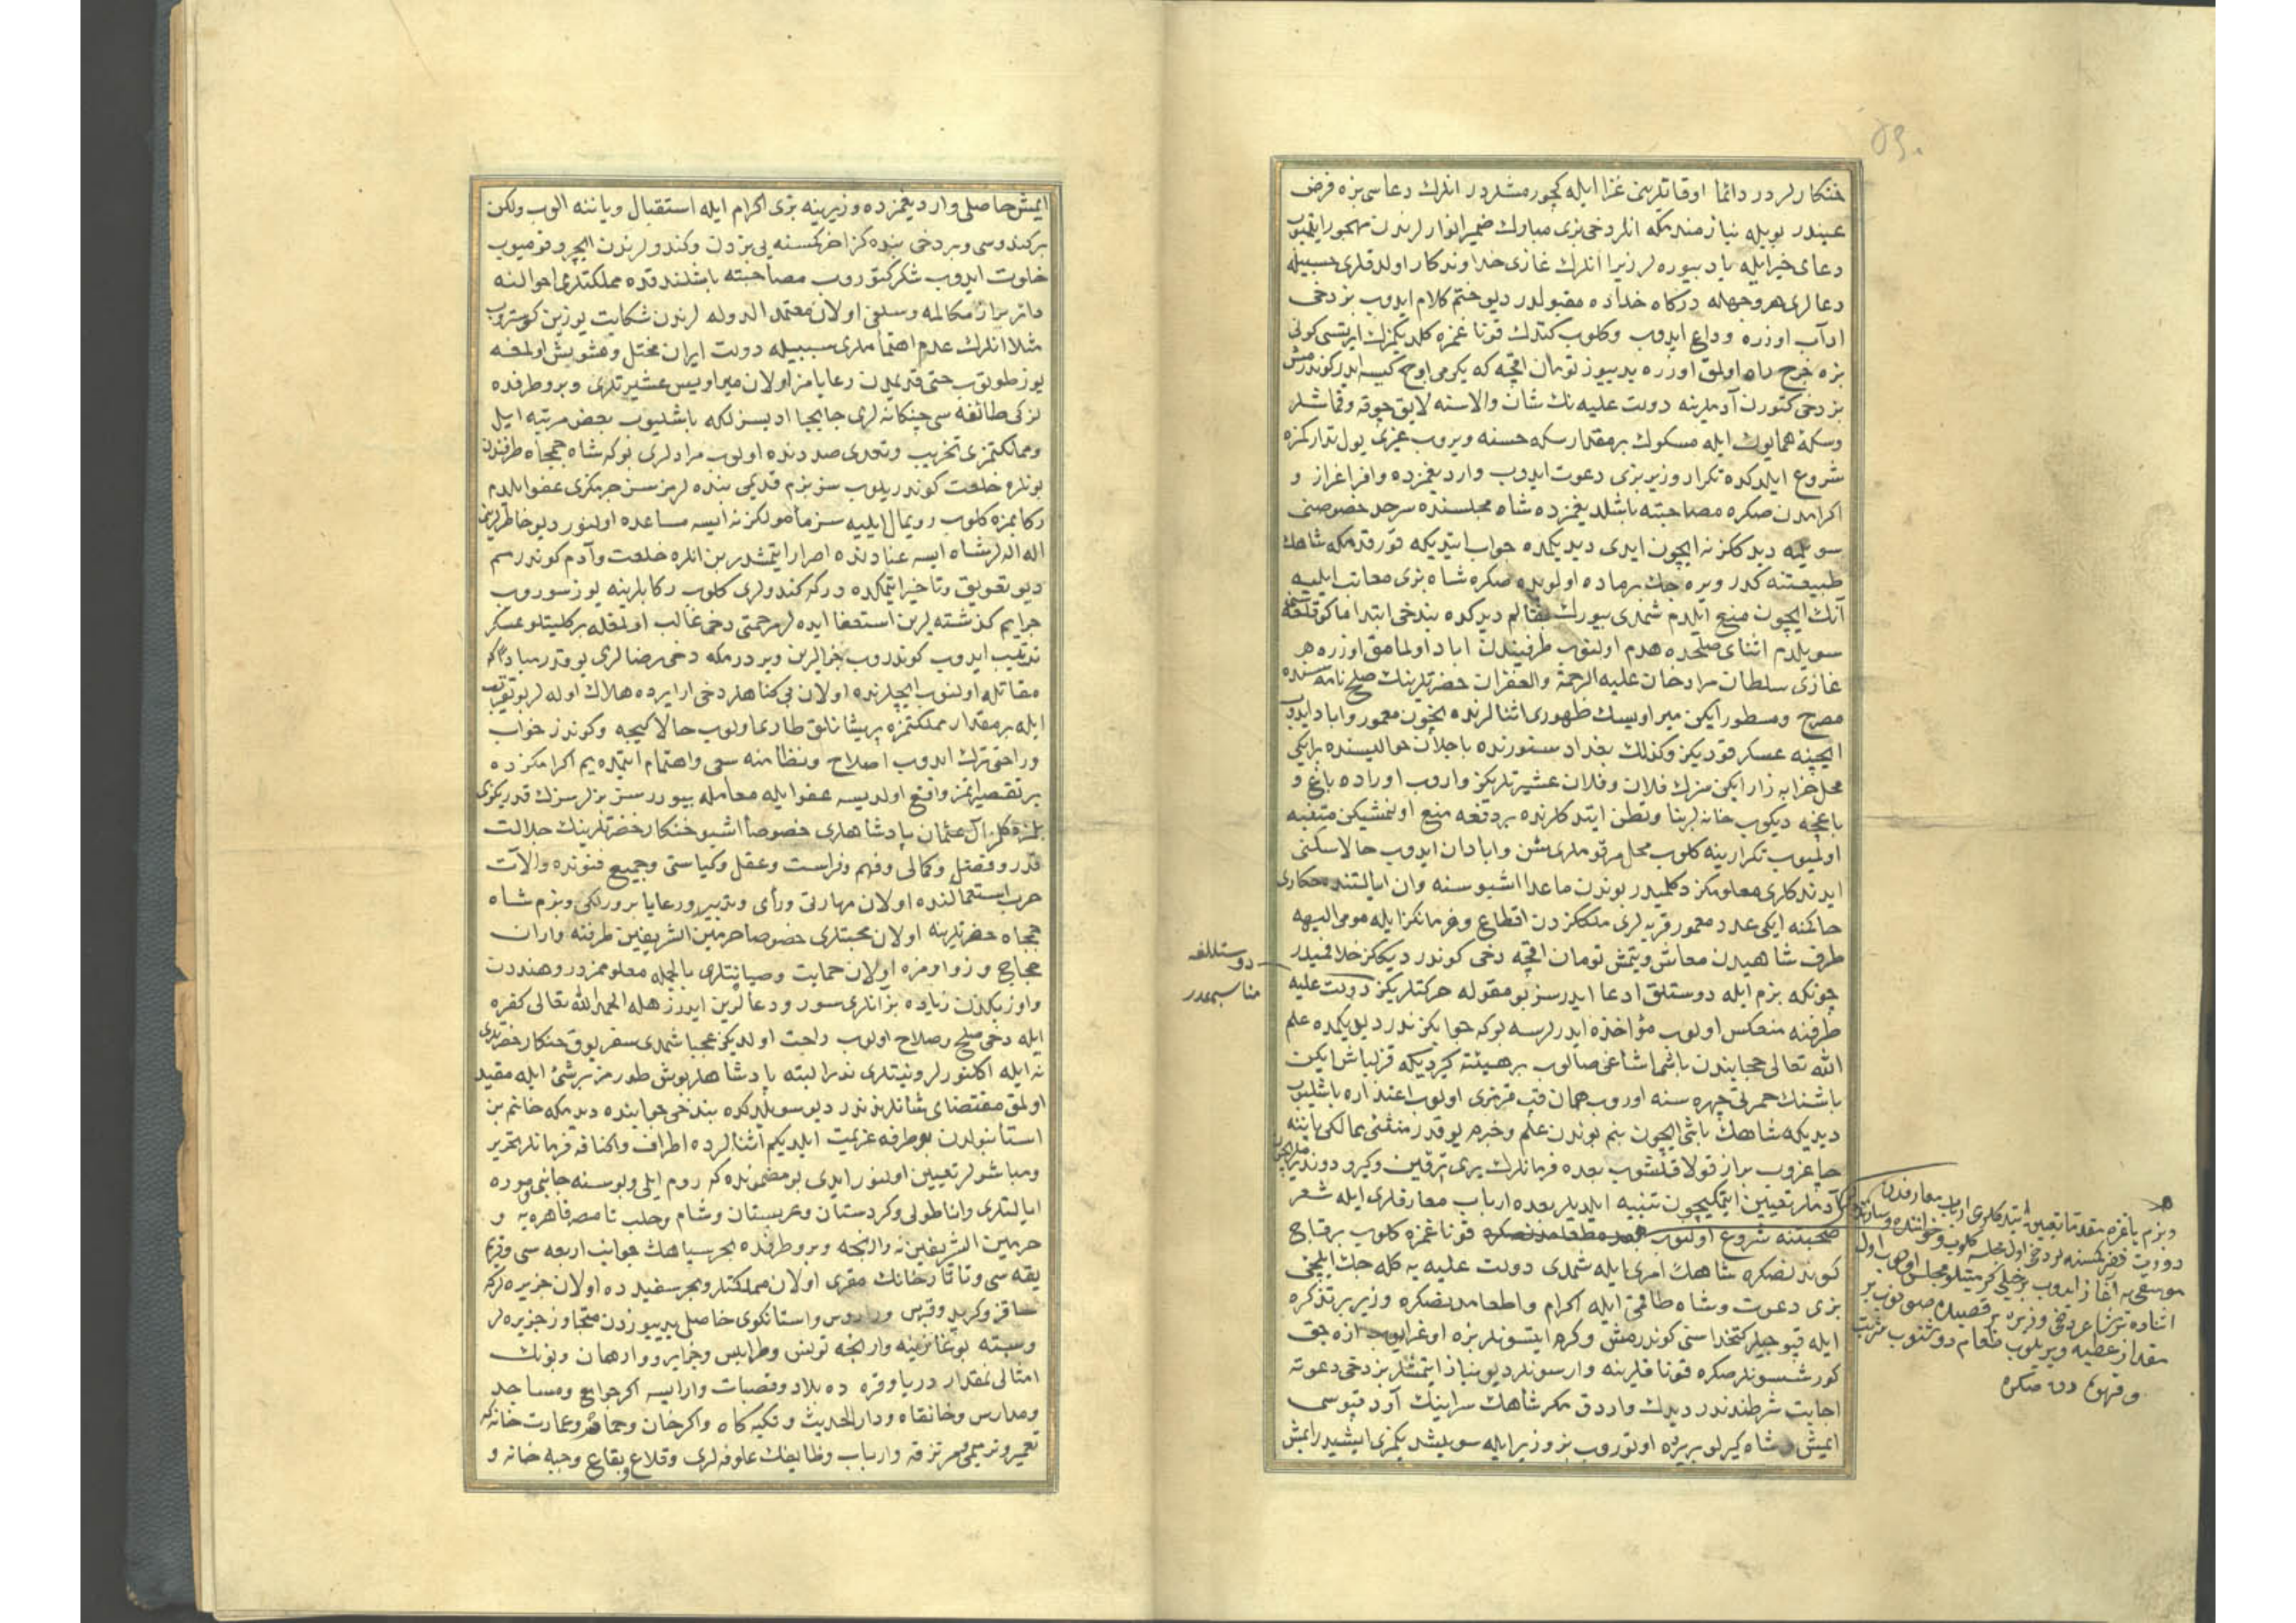 خنكارلردر دائما اوقاتلرينى غزا ايله كچورمشلردر انلرك دعاسى بزه فرض
عيندر بويله نيازمندمكه انلر دخى بزى مبارك ضمير انوارلرندن مهجور ايتميوب
دعاى خير ايله ياد بيوره لر زيرا انلرك غازى خداوندكار اولدقلرى حسبيله
دعالرى هر وجهله دركاه خداده مقبولدر ديو ختم كلام ايدوب بز دخى
ادآب اوزره وداع ايدوب وكلوب كتدك قوناغمزه كلديكمزك ايرتسى كونى
بزه خرج راه اولمق اوزره يديوز تومان اقچه كه يكرمى اوچ كيسه ايدر كوندرمش
بز دخى كتورن آدملرينه دولت عليه نك شان والاسنه لايق چوقه وقماشلر
وسكۀ همايون ايله مسكوك بر مقدار سكه حسنه ويروب عزيمت يول تداركنه
شروع ايلدكده تكرار وزير بزى دعوت ايدوب وارديغمزده وافر اعزاز و
اكرامدن صكره مصاحبته باشلديغمزده شاه مجلسنده سرحد خصوصنى
سويلمه ديدككز نه ايچون ايدى ديديكمده جواب ايتديكه قورقدمكه شاهك
طبيعتنه كدر ويره جك بر ماده اولوبده صكره شاه بزى معاتب ايليه
آنك ايچون منع ايلدم شمدى بيورك بقالم ديدكده بندخى ابتدا ماكو قلعه سنى
سويلدم اثناى صلحده هدم اولنوب طرفيندن اباد اولمامق اوزره هر
غازى سلطان مراد خان عليه الرحمة والغفران حضرتلرينك صلح نامه سنده
مصرح ومسطور ايكن مير اويسك ظهورى اثنالرنده ايچون معمور واباد ايدوب
ايچينه عسكر قوديكز وكذلك بغداد سنورنده باجلان حواليسنده بر ايكى
محل خرابه زار ايكن سزك فلان وفلان عشيرتلريكز واروب اوراده باغ و
باغچه ديكوب خانه لر بنا وتوطن ايتدكلرنده بر دفعه منع اولنمشيكن متنبه
اولميوب تكرار ينه كلوب محل مرقوملرى شن وابادان ايدوب حالا سكنى
ايدندكلرى معلومكز دكلميدر بوندن ماعدا اشبو سنه وان ايالتنده حكارى
حاكمنه ايكى عدد معمور قريه لرى ملككزدن اقطاع وفرمانكز ايله مومى اليهه
طرف شاهيدن معاش ويتمش تومان اقچه دخى كوندرديككز خلافميدر
چونكه بزم ايله دوستلق ادعا ايدرسز بو مقوله حركتلريكز دولت عليه
طرفنه منعكس اولوب مؤاخذه ايدرلرسه بوكه جوابكز ندر ديديكمده علم
الله تعالى حجابندن باشنى اشاغى صالوب بر هيئته كيرديكه قزلباش ايكن
باشنك حمرتى چهره سنه اوروب همان قپ قرمزى اولوب اعتذاره باشليوب
ديديكه شاهك باشى ايچون بنم بوندن علم وخبرم يوقدر منشئ ممالكى ياننه
چاغروب براز قولاقلشوب بعده فرمانلرك يرى ترقين وكيرو دوندير ملريچون
آدملر تعيين ايتمكيچون تنبيه ايلديلر بعده ارباب معارفلرى ايله شعر
صحبتنه شروع اولنوب بعده طعامدنصكره قوناغمزه كلوب بر قاچ
كوندنصكره شاهك امرى ايله شمدى دولت عليه يه كله جك ايلچى
بزى دعوت وشاه طاقمى ايله اكرام واطعامدنصكره وزير بر تذكره
ايله قپوجيلر كتخداسنى كوندرمش وكرم ايتسونلر بزه اوغرايوب ازه جق
كورشسونلر صكره قوناقلرينه وارسونلر ديو نياز ايتمشلر بز دخى دعوته
اجابت شرطندندر ديدك واردق مكر شاهك سراينك آرد قپوسى
ايمش شاه كيزلو بر يرده اوتوروب بز وزير ايله سويلشديكمزى ايشيدر ايمش
دوستلغه
مناسبميدر
وبزم ياغزه مقدما تعيين ايتدكلرى ارباب معارفدن
دورت نفر كمسنه لر دخى اول مجلسه كلوب وخواننده وسازنده لر
موسقى يه آغاز ايدوب بر خيلى كرميتلو مجلس اولوب اول
اثناده بر شاعر دخى وزيره بر قصيده صونوب بر
مقدار عطيه ويريلوب طعام دوشنوب شربت
و قهوه دن صكره
ايمش حاصلى وارديغمزده وزير ينه بزى اكرام ايله استقبال وياننه الوب ولكن
بر كندوسى وبر دخى بنده كز اخر كمسنه يى بزدن وكندولرندن ايچرو قوميوب
خلوت ايدوب شكر كتوروب مصاحبته باشلندقده مملكتلرى احوالنه
دائر براز مكالمه وسلفى اولان معتمد الدوله لرندن شكايت يوزين كوستروب
مثلا انلرك عدم اهتماملرى سببيله دولت ايران مختل ومشوش اولمغه
يوز طوتوب حتى قديمدن رعايامز اولان مير اويس عشيرتلرى وبرو طرفده
لزكى طائفه سى چنكانه لرى جابجا ادبسزلكه باشليوب بعض مرتبه ايل
ومملكتمزى تخريب وتعدى صددنده اولوب مرادلرى بوكه شاه جمجاه طرفندن
بونلره خلعت كوندريلوب سز بزم قديمى بنده لرمزسز جرمكزى عفو ايلدم
ركابمزه كلوب رويمال ايليه سز مأمولكز نه ايسه مساعده اولنور ديو خاطرلرينى
اله الهلر شاه ايسه عنادنده اصرار ايتمشدر بن انلره خلعت وآدم كوندرمم
ديو تعويق وتاخير ايتمكده در كه كندولرى كلوب ركابلرينه يوز سوروب
جرايم كذشته لرين استعفا ايده لر مرحمتى دخى غالب اولمغله بر كليتلو عسكر
ترتيب ايدوب كوندروب جزالرين ويردرمكه دخى رضالرى يوقدر مبادا كه
مقاتله اولنوب ايچلرنده اولان بى كناهلر دخى ارايرده هلاك اوله لر بو تقريب
ايله بر مقدار مملكتمزه پريشانلق طارى اولوب حالا كيجه وكوندز خواب
وراحتى ترك ايدوب اصلاح ونظامنه سعى واهتمام ايتمده يم اكرامكزده
بر تقصيراتمز واقع اولديسه عفو ايله معامله بيوررسز بزلر سزك قدريكزى
بلمزدكلز آل عثمان پادشاهلرى خصوصا اشبو خنكار حضرتلرينك جلالت
قدر وفضل وكمالى وفهم وفراست وعقل وكياستى وجميع فنونده والآت
حرب استعمالنده اولان مهارتى ورأى وتدبير ورعايا پرورلكى وبزم شاه
جمجاه حضرتلرينه اولان محبتلرى خصوصا حرمين الشريفين طرفنه واران
حجاج وزواومزه اولان حمايت وصيانتلرى بالجمله معلوممزدر وهنددن
واوزبكدن زياده بز آنلرى سور ودعالرين ايدرز هله الحمد لله تعالى كفره
ايله دخى صلح وصلاح اولوب راحت اولديكز عجبا شمدى سفر يوق خنكار حضرتلرى
نه ايله اكلنورلر ونيتلرى ندر البته پادشاهلر بوش طورمز بر شئ ايله مقيد
اولمق مقتضاى شانلرندندر ديو سويلدكده بندخى جوابنده ديدمكه خانم بن
استانبولدن بو طرفه عزيمت ايلديكم اثنالرده اطراف واكنافه فرمانلر تحرير
ومباشرلر تعيين اولنور ايدى بو مضمونده كه روم ايلى وبوسنه جانبى وموره
ايالتلرى واناطولى وكردستان وعربستان وشام وحلب تا مصر قاهره يه و
حرمين الشريفينه وارنجه وبرو طرفده بحر سياهك جوانب اربعه سى وقريم
يقه سى وتاتارخانك مقرى اولان مملكتلر وبحر سفيدده اولان جزيره لركه
ساقز وكريد وقبرس ورادوس واستانكوى حاصلى يديوزدن متجاوز جزيره لر
وسبته بوغازينه وارنجه تونس وطرابلس وجزاير ووارهان وبونك
امثالى نمقدار دريا وقره ده بلاد وقصبات وار ايسه اكر جوامع ومساجد
ومدارس وخانقاه ودار الحديث وتكيه كاه واكر خان وحمام وعمارت خانه كه
تعمير وترميمى مرتزقه وارباب وظايفك علوفه لرى وقلاع وبقاع وجبه خانه و